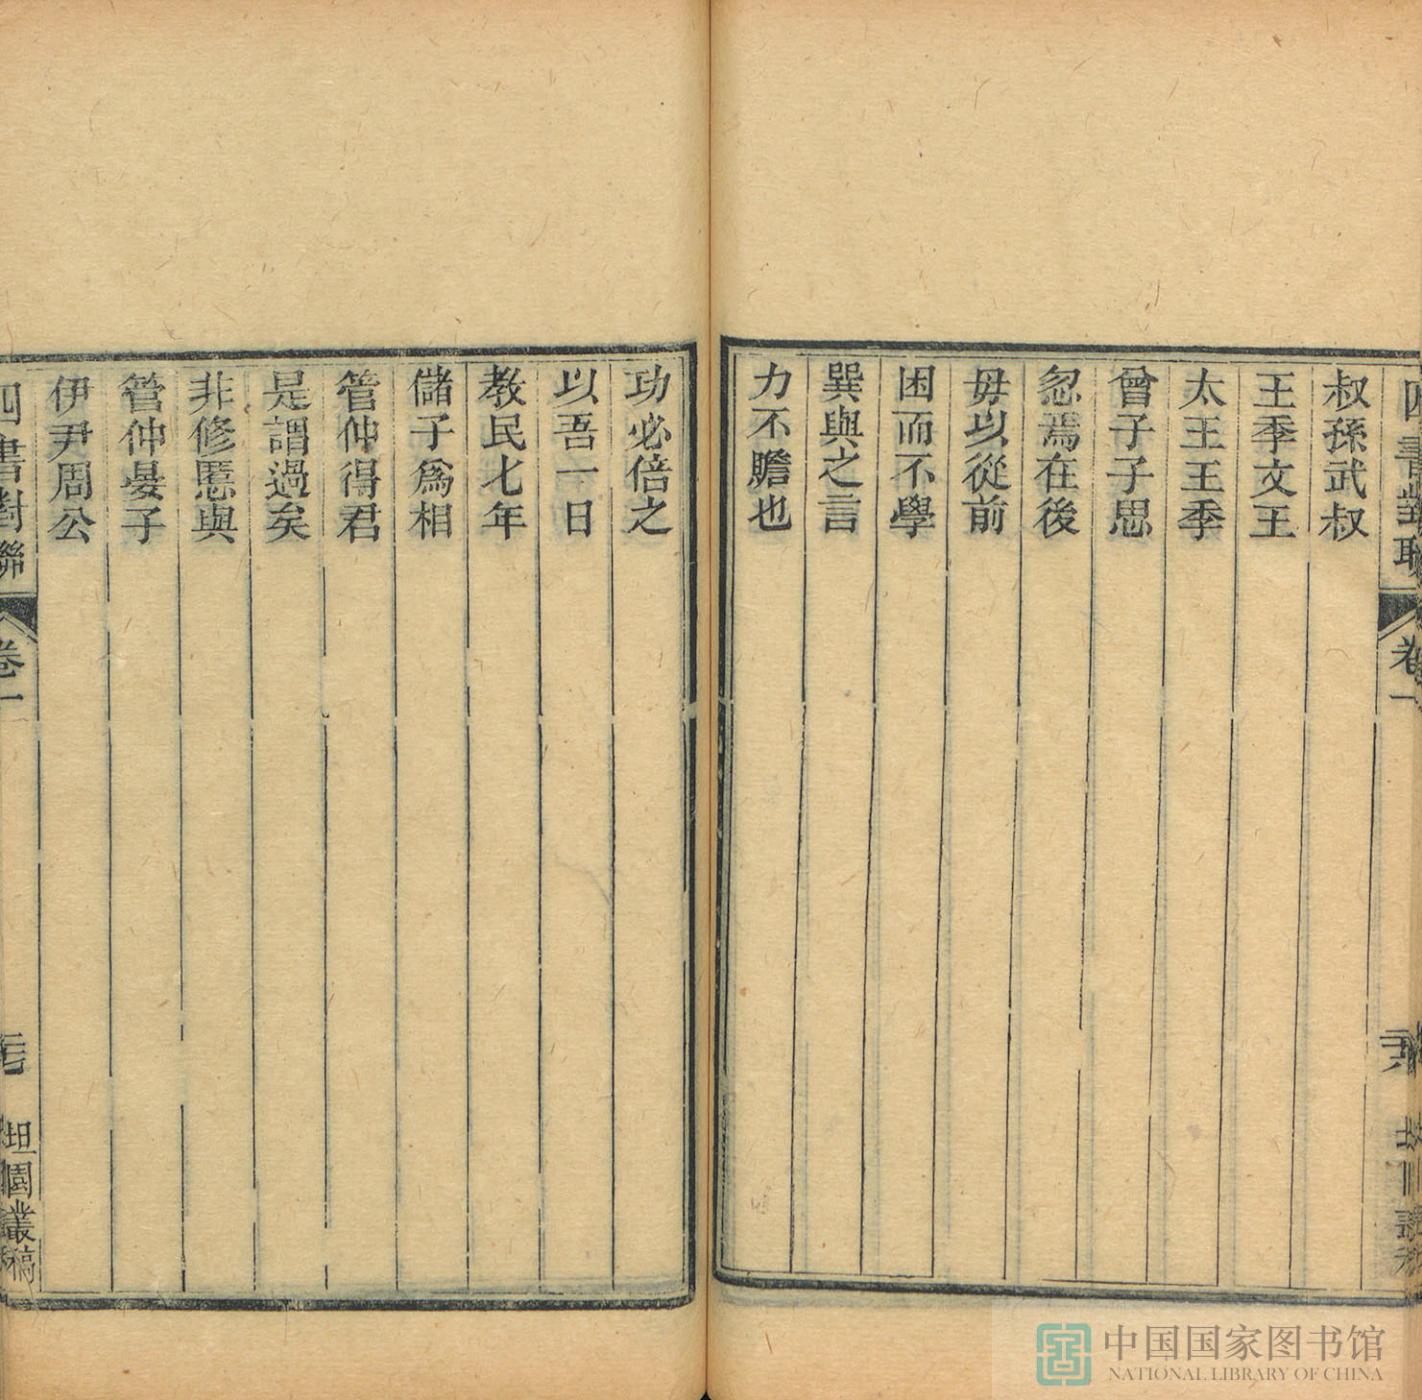 四書對聯
卷一
叔孫武叔
王季文王
太王王季
曾子子思
忽焉在後
毋以從前
困而不學
巽與之言
力不贍也
功必倍之
以吾一日
教民七年
儲子爲相
管仲得君
是謂過矣
非修慝與
管仲晏子
伊尹周公
四書對聯
卷一
坦園叢稿
中国国家图书馆
NATIONAL LIBRARY OF CHINA